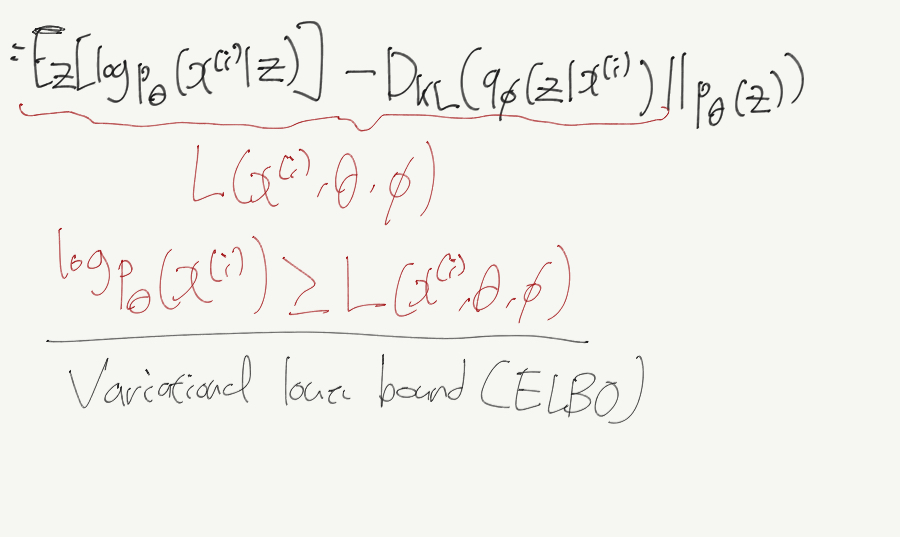 = E_z[log p_θ(x^(i)|z)] − D_KL(q_ϕ(z|x^(i))||p_θ(z))
L(x^(i),θ,ϕ)
log p_θ(x^(i)) ≥ L(x^(i),θ,ϕ)
Variational lower bound (ELBO)